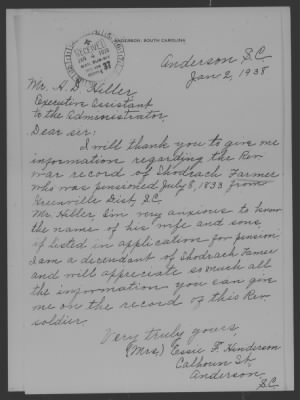 ANDERSON, SOUTH CAROLINA
RECEIVED
Anderson, S.C.
Jan 2, 1938
Mr. A. D. Hiller
Executive Assistant
to the Administrator
Dear sir:
I will thank you to give me
information regarding the Rev
war record of Shodrach Farmer
who was pensioned July 8, 1833 from
Greenville Dist, S.C.
Mr. Hiller, Im very anxious to know
the name of his wife and sons,
if listed in application for pension
I am a decendant of Shodrach Farmer
and will appreciate so much all
the information you can give
me on the record of this Rev.
soldier.
Very truly yours,
(Mrs.) Essie F. Henderson
Calhoun St.
Anderson,
S.C.